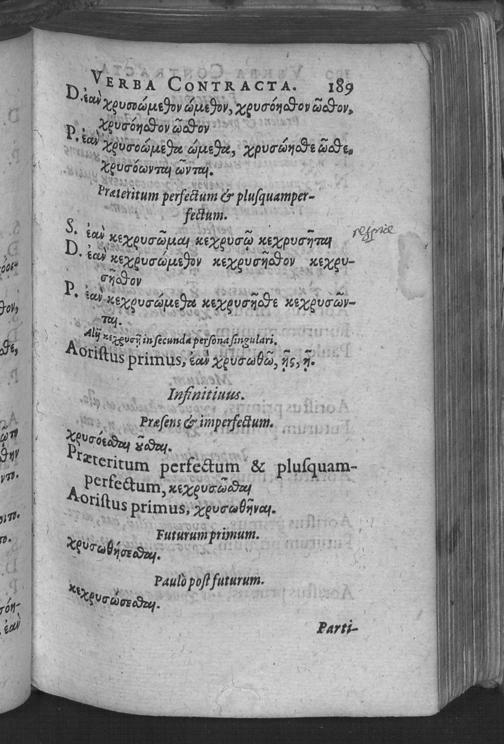 VERBA CONTRACTA. 189
D. ἐὰν χρυσοώμεθον ώμεθον, χρυσόησθον ῶσθον,
χρυσόησθον ῶσθον
P. ἐὰν χρυσοώμεθα ώμεθα, χρυσώησθε ῶσθε,
χρυσόωνται ῶνται.
Præteritum perfectum & plusquamper-
fectum.
S. ἐὰν κεχρυσῶμαι κεχρυσῷ κεχρυσῆται
D. ἐὰν κεχρυσώμεθον κεχρυσῆσθον κεχρυ-
σῆσθον
P. ἐὰν κεχρυσώμεθα κεχρυσῆσθε κεχρυσῶν-
ται.
Alij κεχρυσῇ in secunda persona singulari.
Aoristus primus, ἐὰν χρυσωθῶ, ῇς, ῇ.
Infinitiuus.
Præsens & imperfectum.
χρυσόεσθαι οῦσθαι.
Præteritum perfectum & plusquam-
perfectum, κεχρυσῶσθαι
Aoristus primus, χρυσωθῆναι.
Futurum primum.
χρυσωθήσεσθαι.
Paulò post futurum.
κεχρυσώσεσθαι.
Parti-